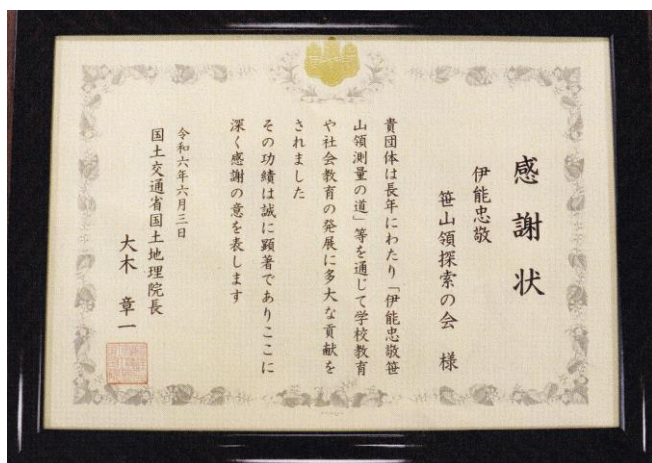 感謝状
伊能忠敬
笹山領探索の会 様
貴団体は長年にわたり「伊能忠敬笹
山領測量の道」等を通じて学校教育
や社会教育の発展に多大な貢献を
されました
その功績は誠に顕著でありここに
深く感謝の意を表します
令和六年六月三日
国土交通省国土地理院長
大木 章一